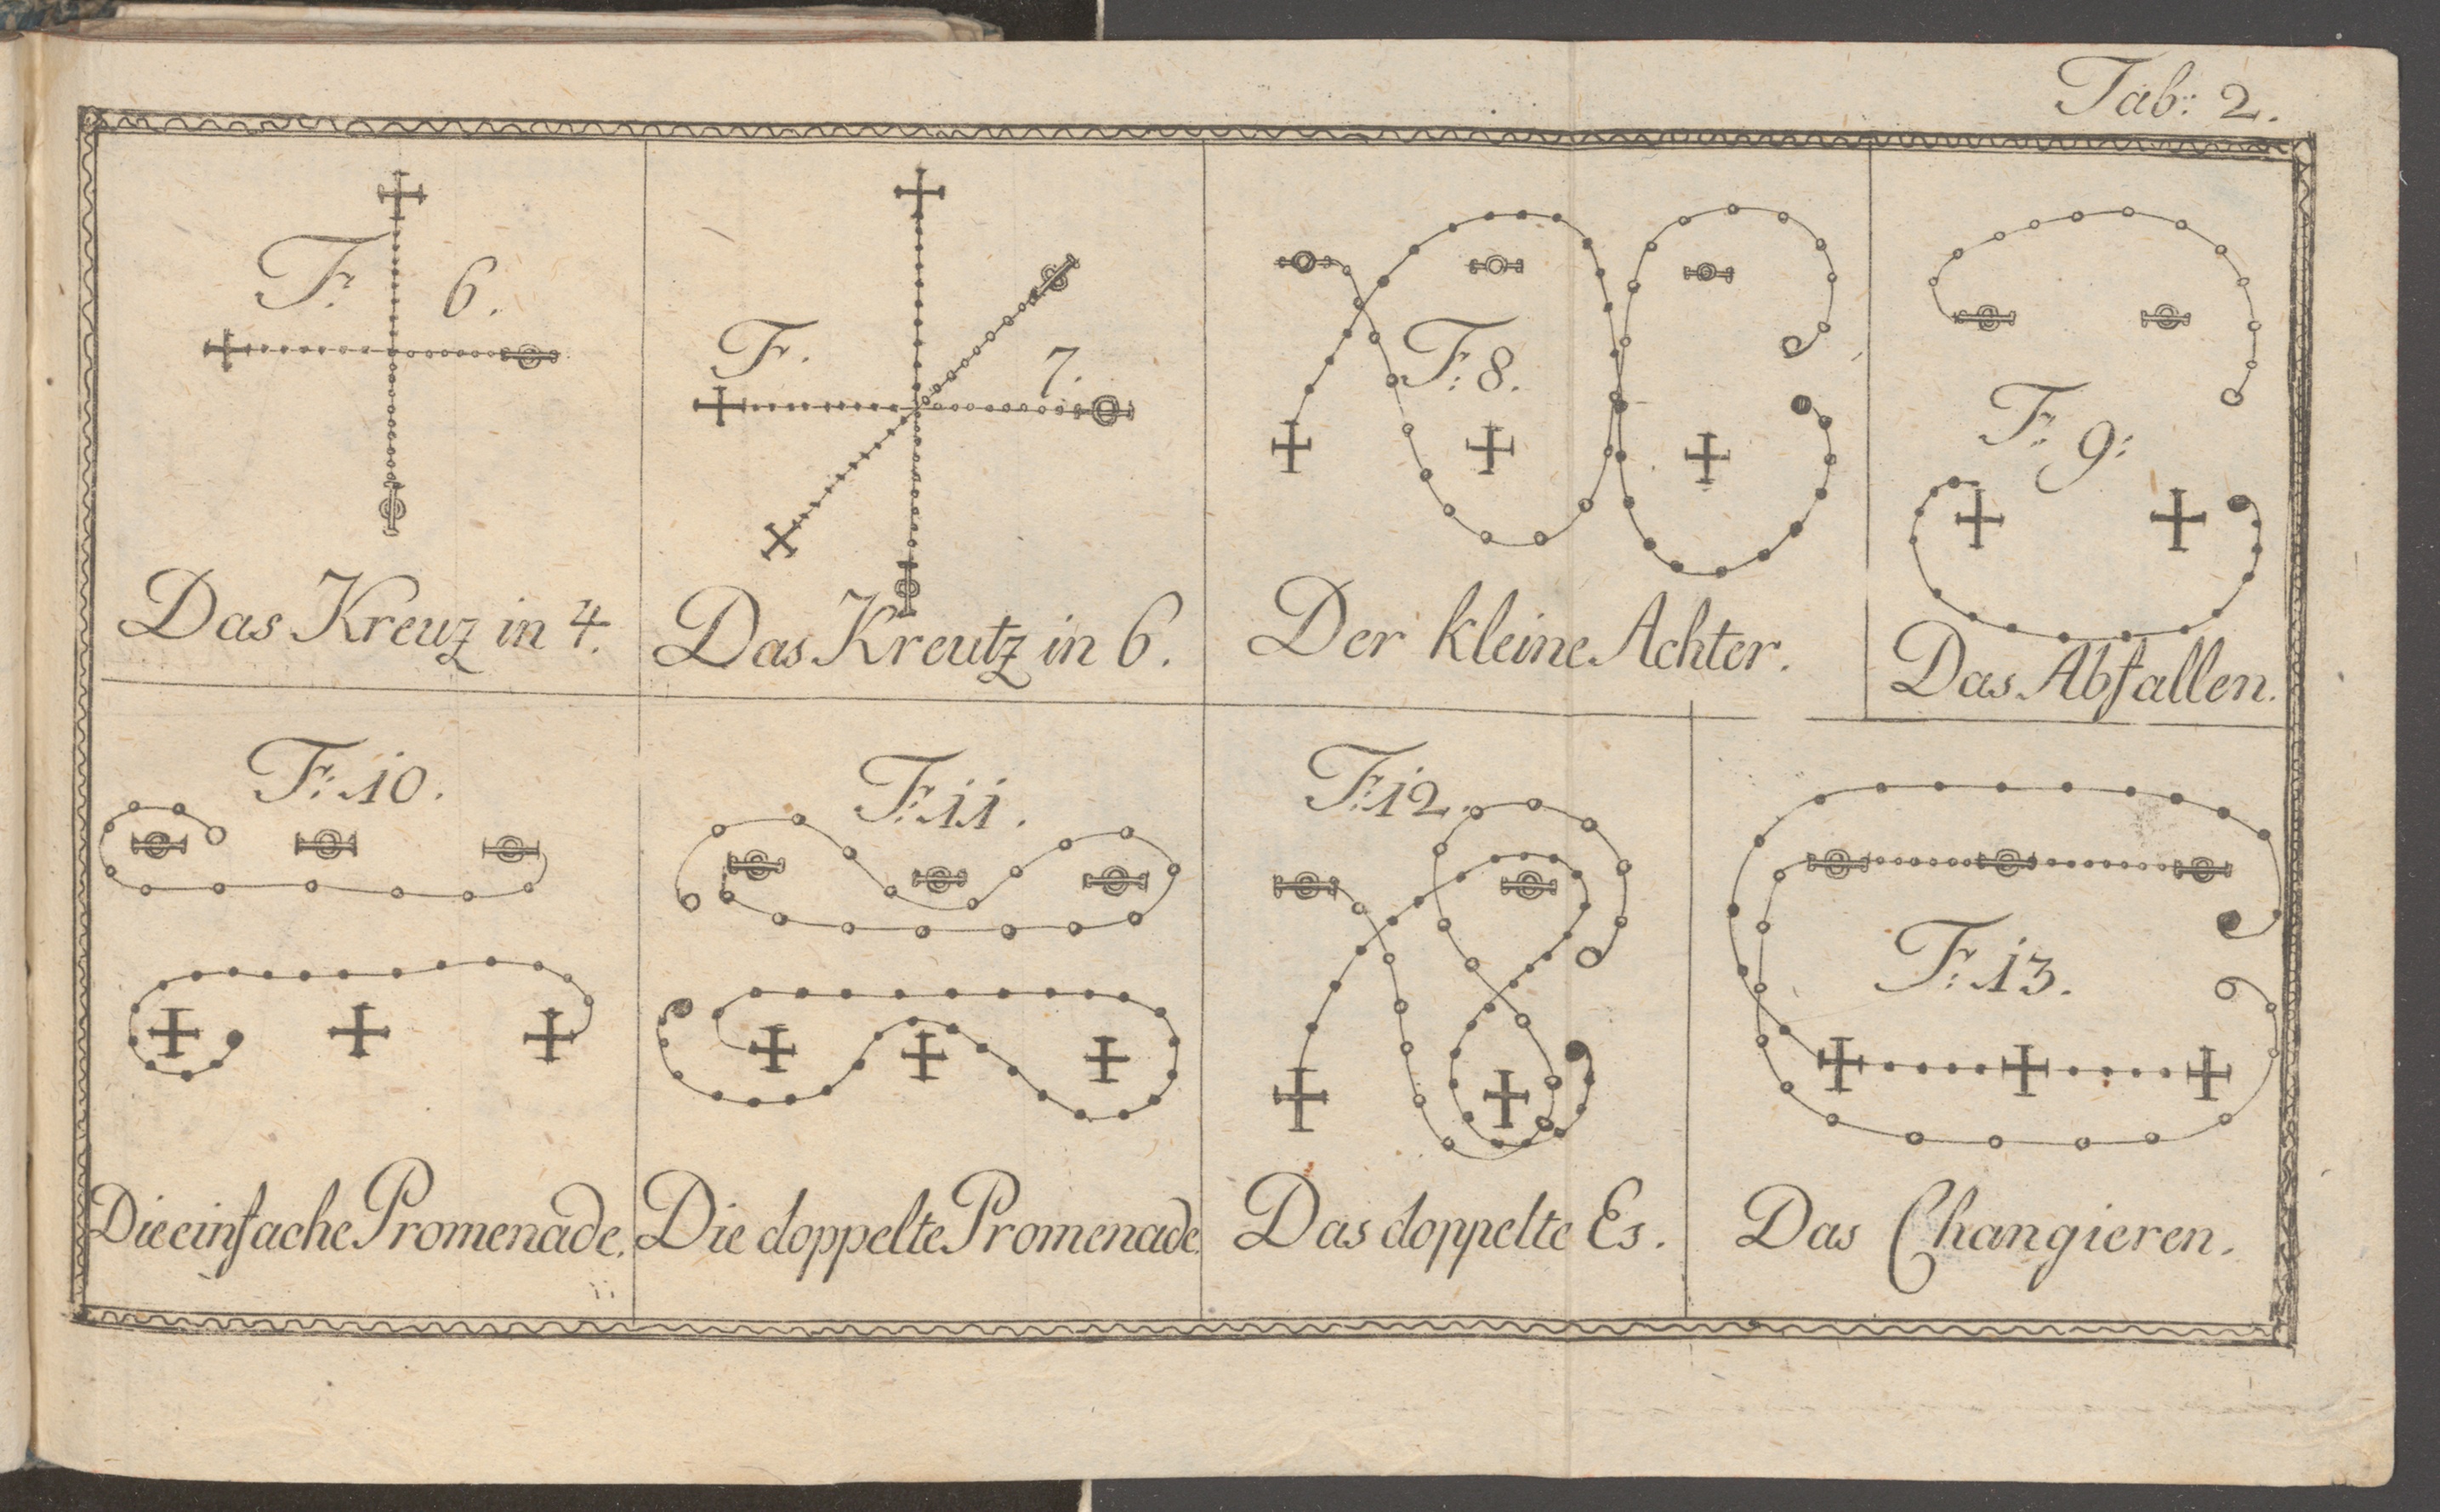 Tab: 2.
F. 6.
Das Kreuz in 4.
F. 7.
Das Kreutz in 6.
F: 8.
Der kleine Achter.
F: 9:
Das Abfallen.
F: 10.
Die einfache Promenade.
F: 11.
Die doppelte Promenade.
F: 12.
Das doppelte Es.
F: 13.
Das Changieren.